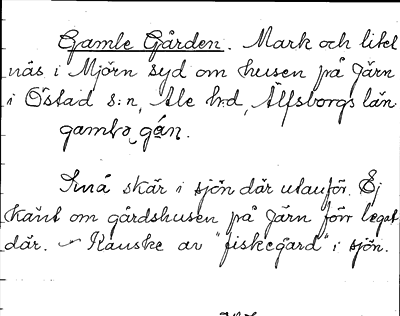 Gamle Gården. Mark och litet
näs i Mjörn syd om husen på Järn
i Östad s:n, Ale hd, Älfsborgs län
gamlə gán.
Små skär i sjön där utanför. Ej
känt om gårdshusen på Järn förr legat
där. – Kanske av "fiskegård" i sjön.